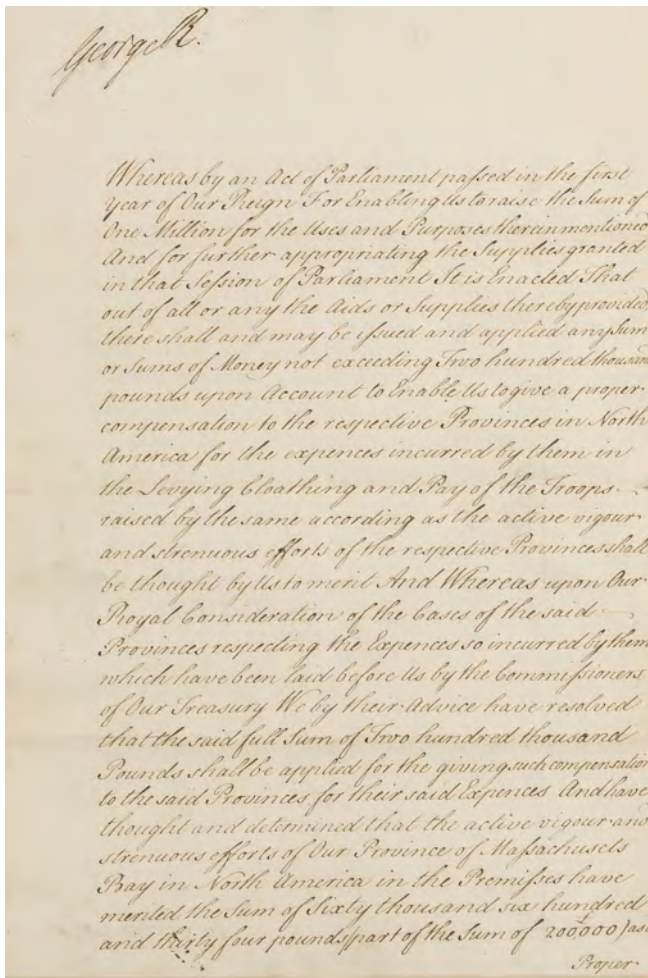 George R.
Whereas by an Act of Parliament passed in the first
year of Our Reign For Enabling Us to raise the Sum of
One Million for the Uses and Purposes therein mentioned
And for further appropriating the Supplies granted
in that Session of Parliament It is Enacted That
out of all or any the Aids or Supplies thereby provided
there shall and may be issued and applied any Sum
or Sums of Money not exceeding Two hundred thousand
pounds upon Account to Enable Us to give a proper
compensation to the respective Provinces in North
America for the expences incurred by them in
the Levying Cloathing and Pay of the Troops
raised by the same according as the active vigour
and strenuous efforts of the respective Provinces shall
be thought by Us to merit And Whereas upon Our
Royal Consideration of the Cases of the said
Provinces respecting the Expences so incurred by them
which have been laid before Us by the Commissioners
of Our Treasury We by their Advice have resolved
that the said full Sum of Two hundred thousand
Pounds shall be applied for the giving such compensation
to the said Provinces for their said Expences And have
thought and determined that the active vigour and
strenuous efforts of Our Province of Massachusets
Bay in North America in the Premisses have
merited the Sum of Sixty thousand six hundred
and thirty four pounds (part of the Sum of 200000) as a
Proper